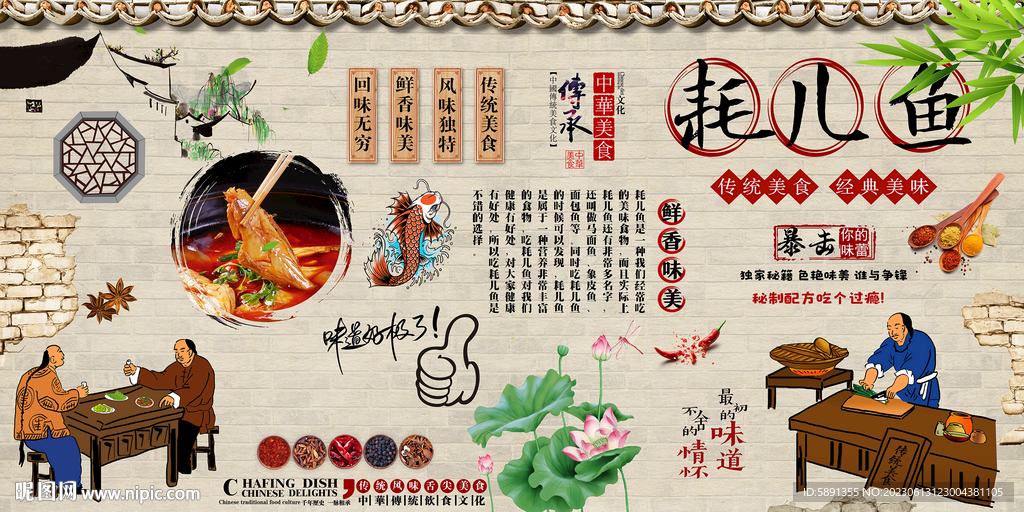 耗儿鱼
传统美食 经典美味
暴击 你的味蕾
独家秘籍 色艳味美 谁与争锋
秘制配方吃个过瘾!
鲜香味美
耗儿鱼是一种我们经常吃
的美味食物,而且实际上
耗儿鱼还有非常多名字,
还叫做马面鱼、象皮鱼、
面包鱼等,同时吃耗儿鱼
的时候可以发现,耗儿鱼
是属于一种营养非常丰富
的食物,吃耗儿鱼对我们
健康有好处,对大家健康
有好处,所以吃耗儿鱼是
不错的选择。
文化
中華美食
傳承
【中國傳統美食文化】
中華美食
传统美食
风味独特
鲜香味美
回味无穷
味道好极了!
最初的味道
不舍的情怀
传统美食
CHAFING DISH
CHINESE DELIGHTS
Chinese traditional food culture 千年历史 一脉相承
传统风味舌尖美食
中華傳統飲食文化
昵图网 www.nipic.com
ID:5891355 NO:20230613123004381105